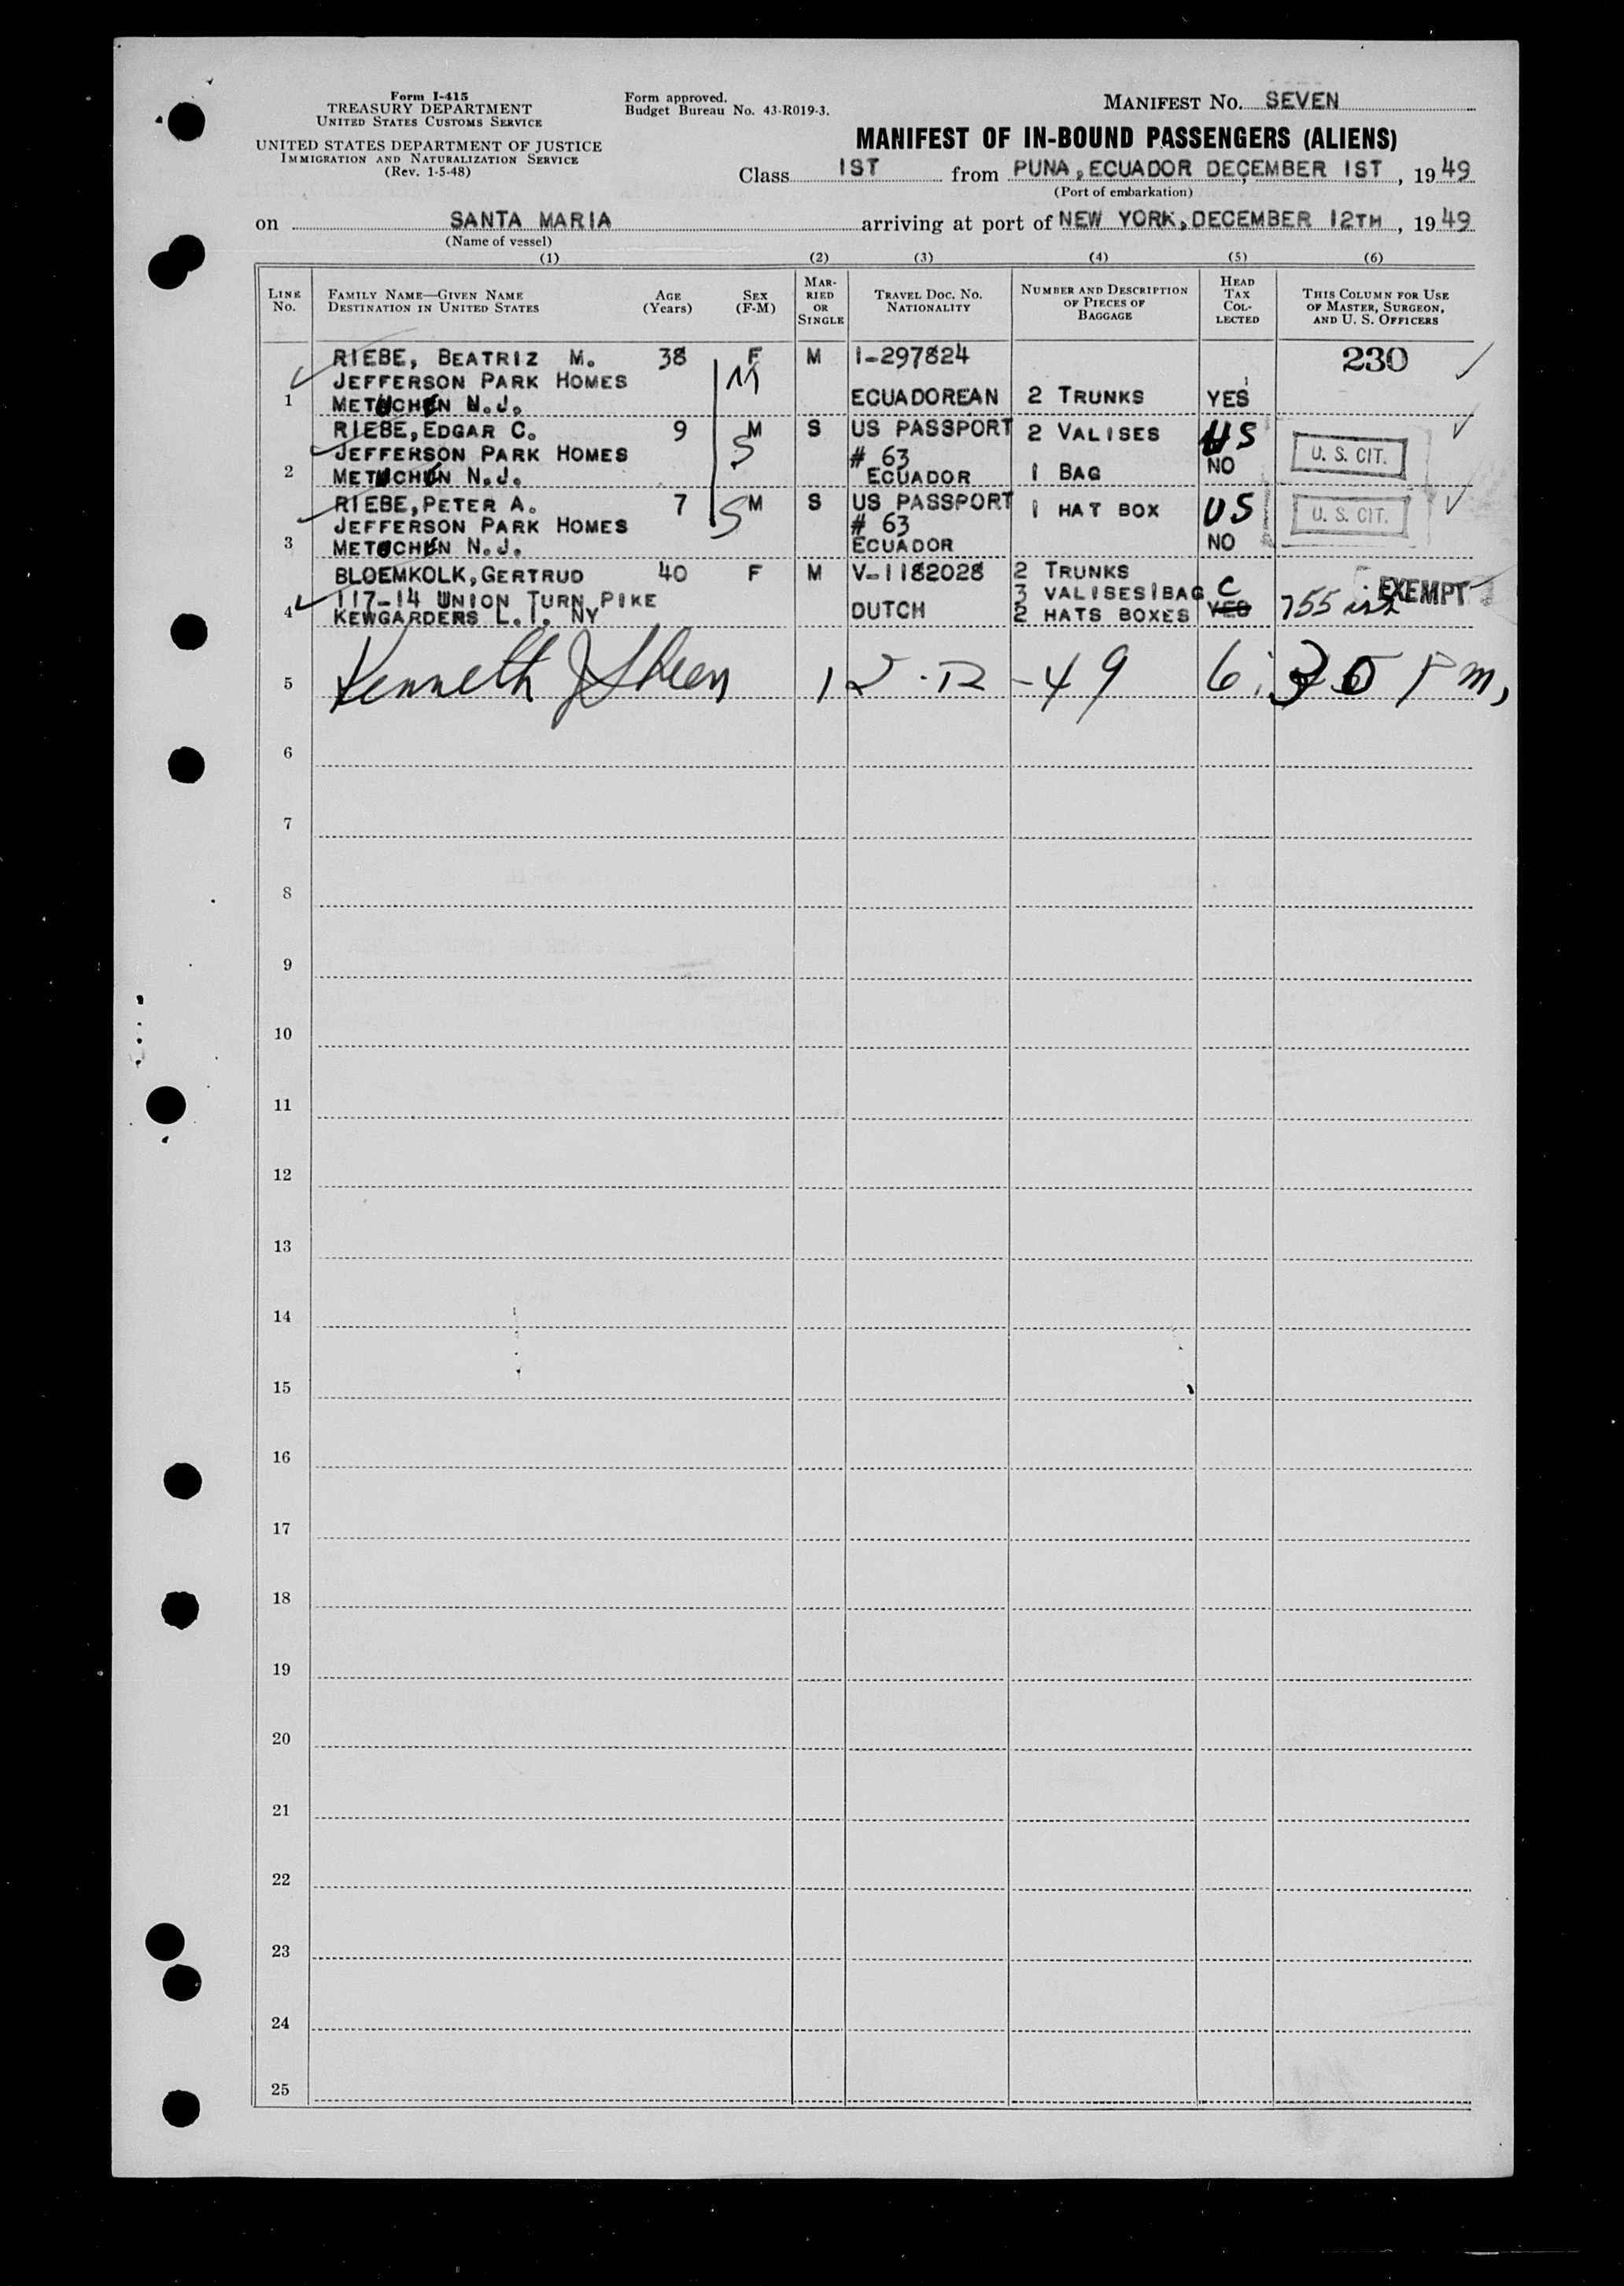 Form I-415
TREASURY DEPARTMENT
UNITED STATES CUSTOMS SERVICE
UNITED STATES DEPARTMENT OF JUSTICE
IMMIGRATION AND NATURALIZATION SERVICE
(Rev. 1-5-48)
Form approved.
Budget Bureau No. 43-R019-3.
MANIFEST NO. SEVEN
MANIFEST OF IN-BOUND PASSENGERS (ALIENS)
Class 1ST from PUNA, ECUADOR DECEMBER 1ST, 1949
(Port of embarkation)
on SANTA MARIA arriving at port of NEW YORK, DECEMBER 12TH, 1949
(Name of vessel)
(1) (2) (3) (4) (5) (6)
LINE NO.
FAMILY NAME—GIVEN NAME
DESTINATION IN UNITED STATES
AGE (Years)
SEX (F-M)
MARRIED OR SINGLE
TRAVEL DOC. NO.
NATIONALITY
NUMBER AND DESCRIPTION OF PIECES OF BAGGAGE
HEAD TAX COLLECTED
THIS COLUMN FOR USE OF MASTER, SURGEON, AND U. S. OFFICERS
RIEBE, BEATRIZ M. 38 F M I-297824 230
JEFFERSON PARK HOMES M
1 METUCHEN N.J. ECUADOREAN 2 TRUNKS YES
RIEBE, EDGAR C. 9 M S US PASSPORT 2 VALISES US
JEFFERSON PARK HOMES S # 63 U. S. CIT.
2 METUCHEN N.J. ECUADOR 1 BAG NO
RIEBE, PETER A. 7 S M S US PASSPORT 1 HAT BOX US
JEFFERSON PARK HOMES # 63 U. S. CIT.
3 METUCHEN N.J. ECUADOR NO
BLOEMKOLK, GERTRUD 40 F M V-1182028 2 TRUNKS
117-14 UNION TURN PIKE 3 VALISES 1 BAG C EXEMPT
4 KEWGARDERS L.I. NY DUTCH 2 HATS BOXES YES 755
5 Kenneth J 12-12-49 6:30 Pm,
6
7
8
9
10
11
12
13
14
15
16
17
18
19
20
21
22
23
24
25